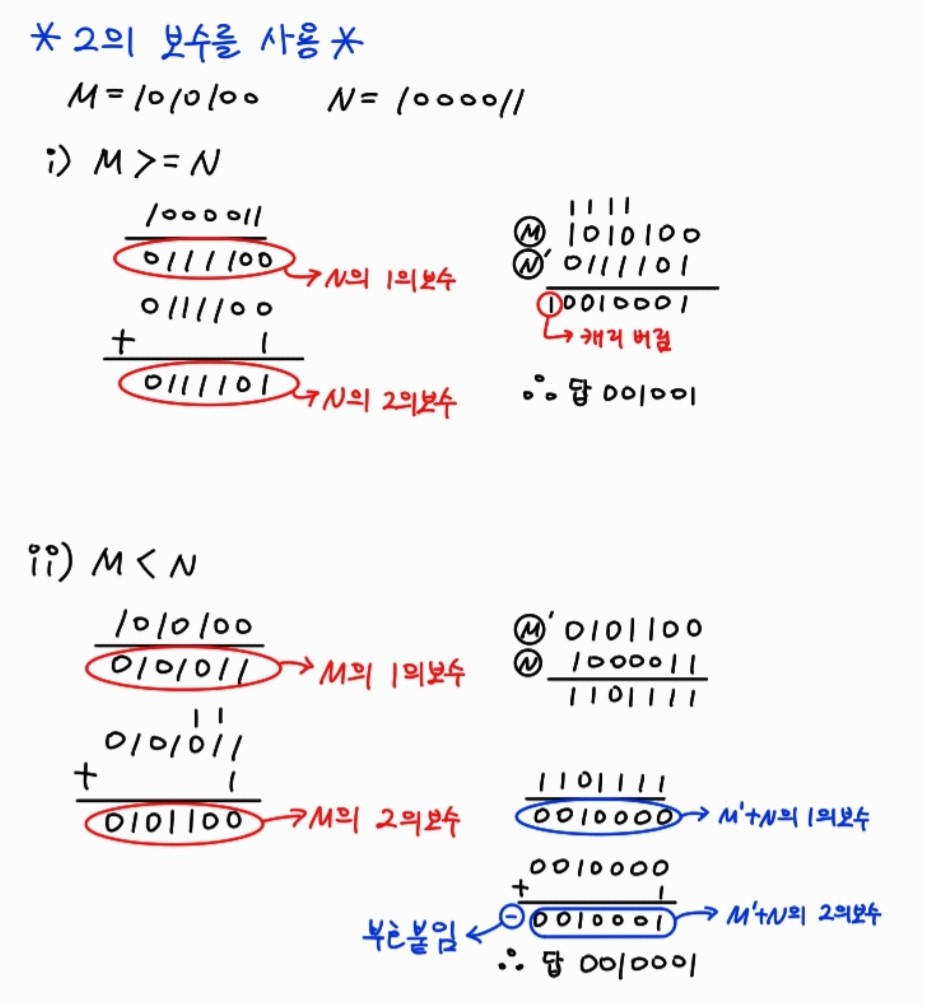 *2의 보수를 사용*
M=1010100 N=1000011
i) M>=N
1000011
0111100 →N의 1의보수
0111100
+ 1
0111101 →N의 2의보수
1111
Ⓜ 1010100
Ⓝ' 0111101
10010001
→ 캐리 버림
∴ 답 001001
ii) M<N
1010100
0101011 →M의 1의보수
11
0101011
+ 1
0101100 →M의 2의보수
Ⓜ' 0101100
Ⓝ 1000011
1101111
1101111
0010000 →M'+N의 1의보수
0010000
+ 1
⊖ 0010001 →M'+N의 2의보수
붙임 ←
∴ 답 0010001